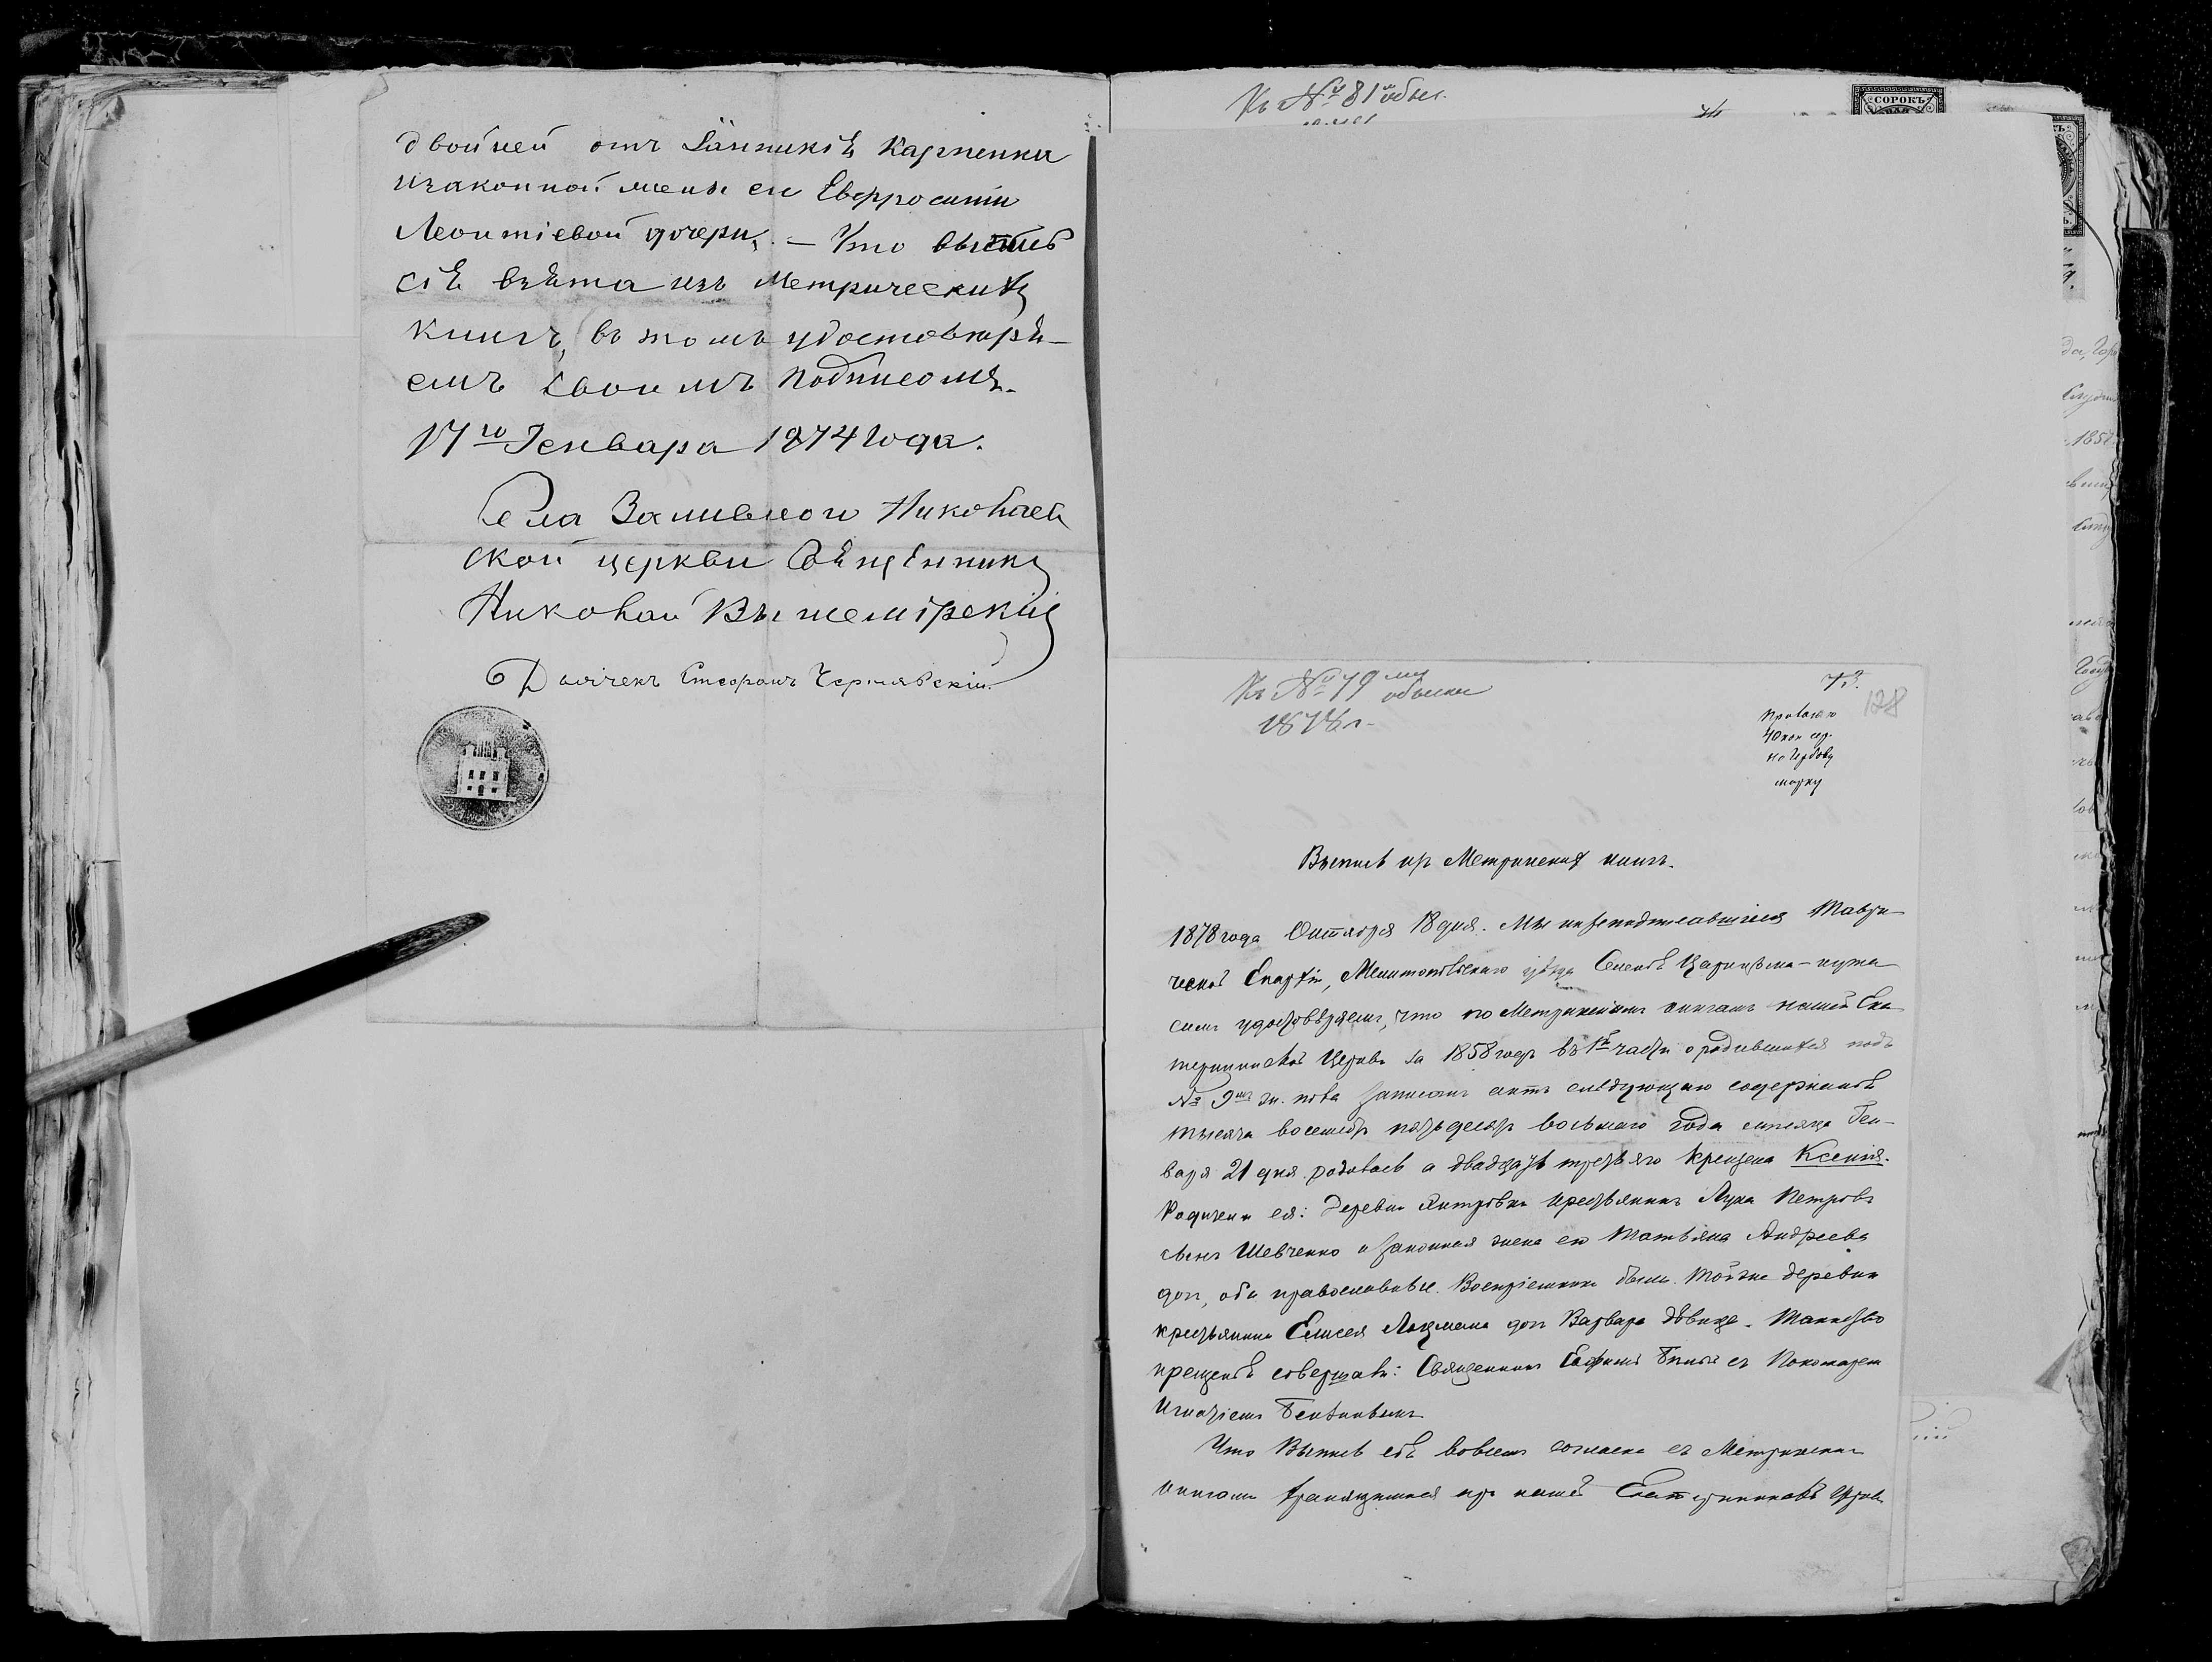 двойней отъ Іанникія Карпенки
изаконной жены его Евфросиніи
Леонтіевой дочери, — Что выпись
сія взята изъ Метрическихъ
книгъ, въ томъ удостовѣря-
емъ своимъ подписомъ.
17го Генваря 1874 года.
Села Николаев
ской церкви Священникъ
Николай Вышемірскій
Дьячекъ Стефанъ Чернявскій.
Къ № 81 обыс.
СОРОКЪ
Къ № 79му обыски
1878 г.
128
Прилагаю
40 коп сер.
на гербову
марку
Выпись изъ Метрическихъ книгъ.
1878 года Октября 18 дня. Мы нижеподписавшіеся Таври-
ческой Епархіи, Мелитопольскаго уѣзда Селенія Царицына-кута
симъ удостовѣряемъ, что по Метрическимъ книгамъ нашей Ека-
терининской Церкви за 1858 годъ въ 1й части о родившихся подъ
№ 9мъ ж. пола записанъ актъ слѣдующаго содержанія
тысяча восемсотъ пятьдесятъ восьмаго года мѣсяца Ген-
варя 21 дня родилась а двадцать третьяго крещена Ксенія.
Родители ея: деревни Янтровки крестьянинъ Лука Петровъ
сынъ Шевченко и законная жена его Татьяна Андреева
доч, оба православные. Воспріемники были: Той же деревни
крестьянина Елисея доч Варвара дѣвица. Таинство
крещенія совершали: Священникъ Евфимъ съ Пономаремъ
Игнатіемъ
Что Выпись сія вовсемъ согласна съ Метрическими
книгами хранящимися при нашей Екатерининской Церкви